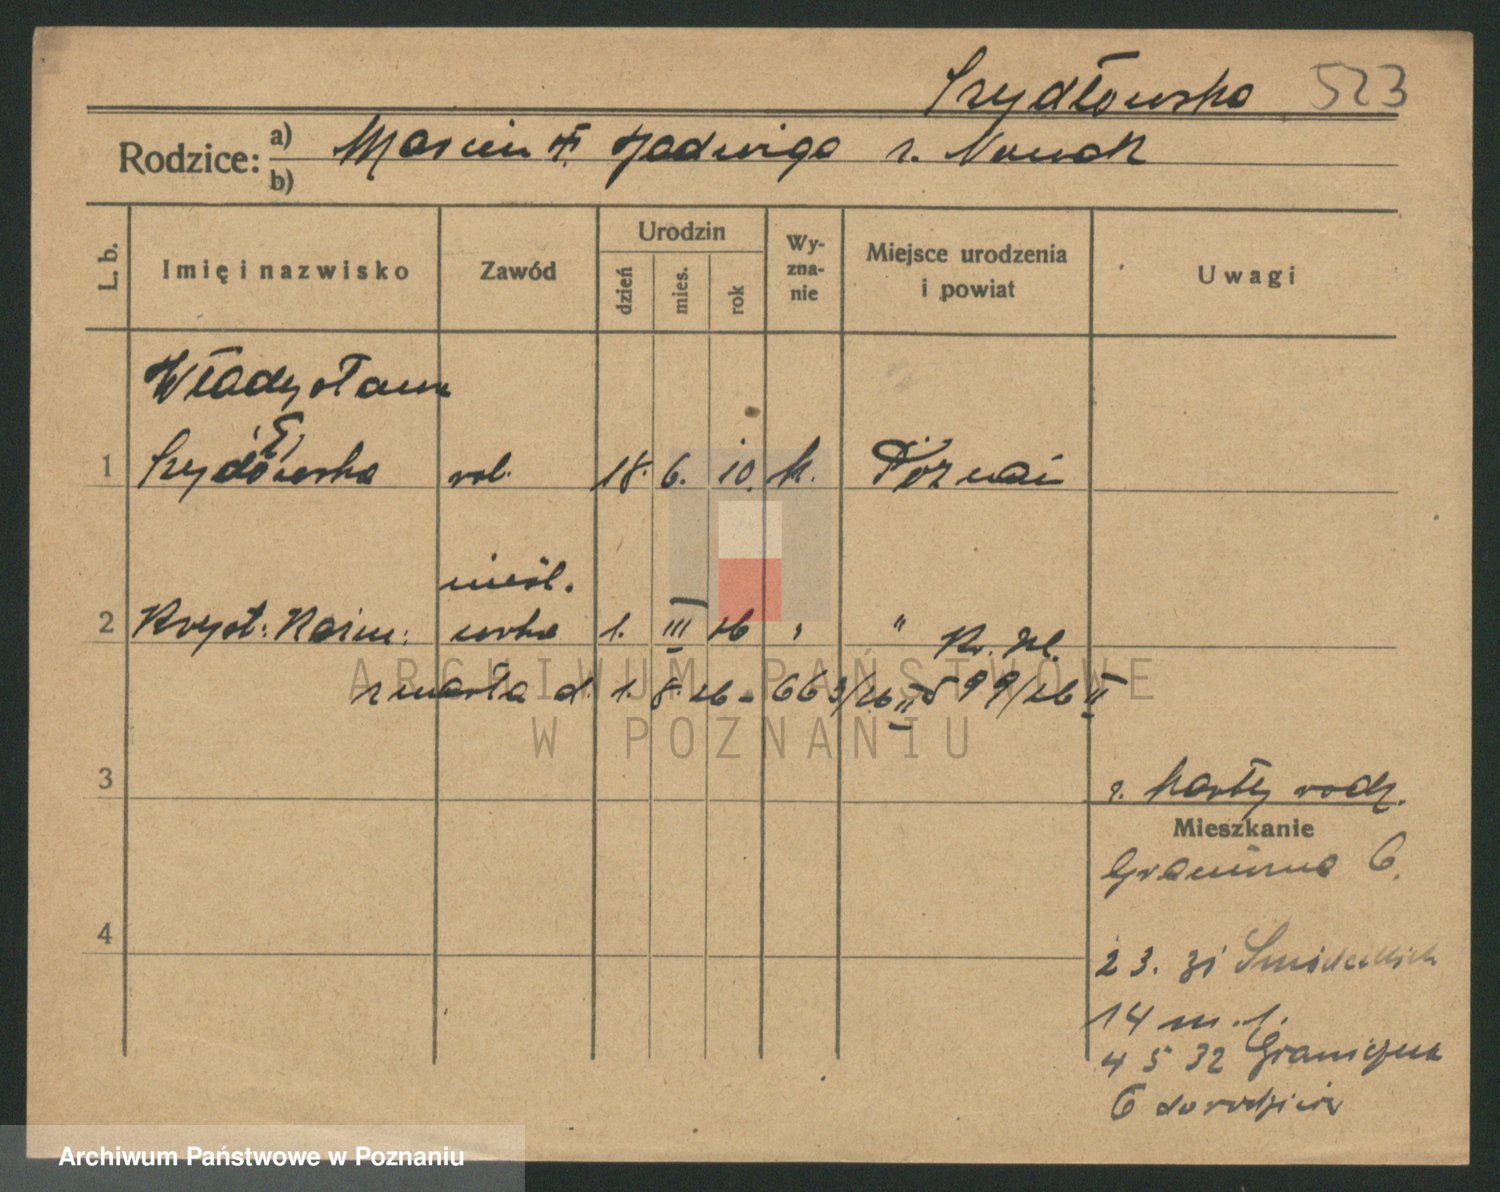 Szydłowska 523
Rodzice: a) Marcin Jadwiga z. Nowak
b)
L. b.
Imię i nazwisko
Zawód
Urodzin
dzień
mies.
rok
Wy-
zna-
nie
Miejsce urodzenia
i powiat
Uwagi
Władysława
1 Szydłowska rob. 18. 6. 10. k. Poznań
nieśl.
2 Kryst. Kazim. córka 1. III 26 " " Kr. Pl.
zmarła d. 1. 8. 26 - 663/26 II 599/26 II
3
z. karty rodz.
Mieszkanie
Graniczna 6.
4
23. 31
14 m. 1.
4 5 32 Graniczna
6 do rodziców
ARCHIWUM PAŃSTWOWE
W POZNANIU
Archiwum Państwowe w Poznaniu